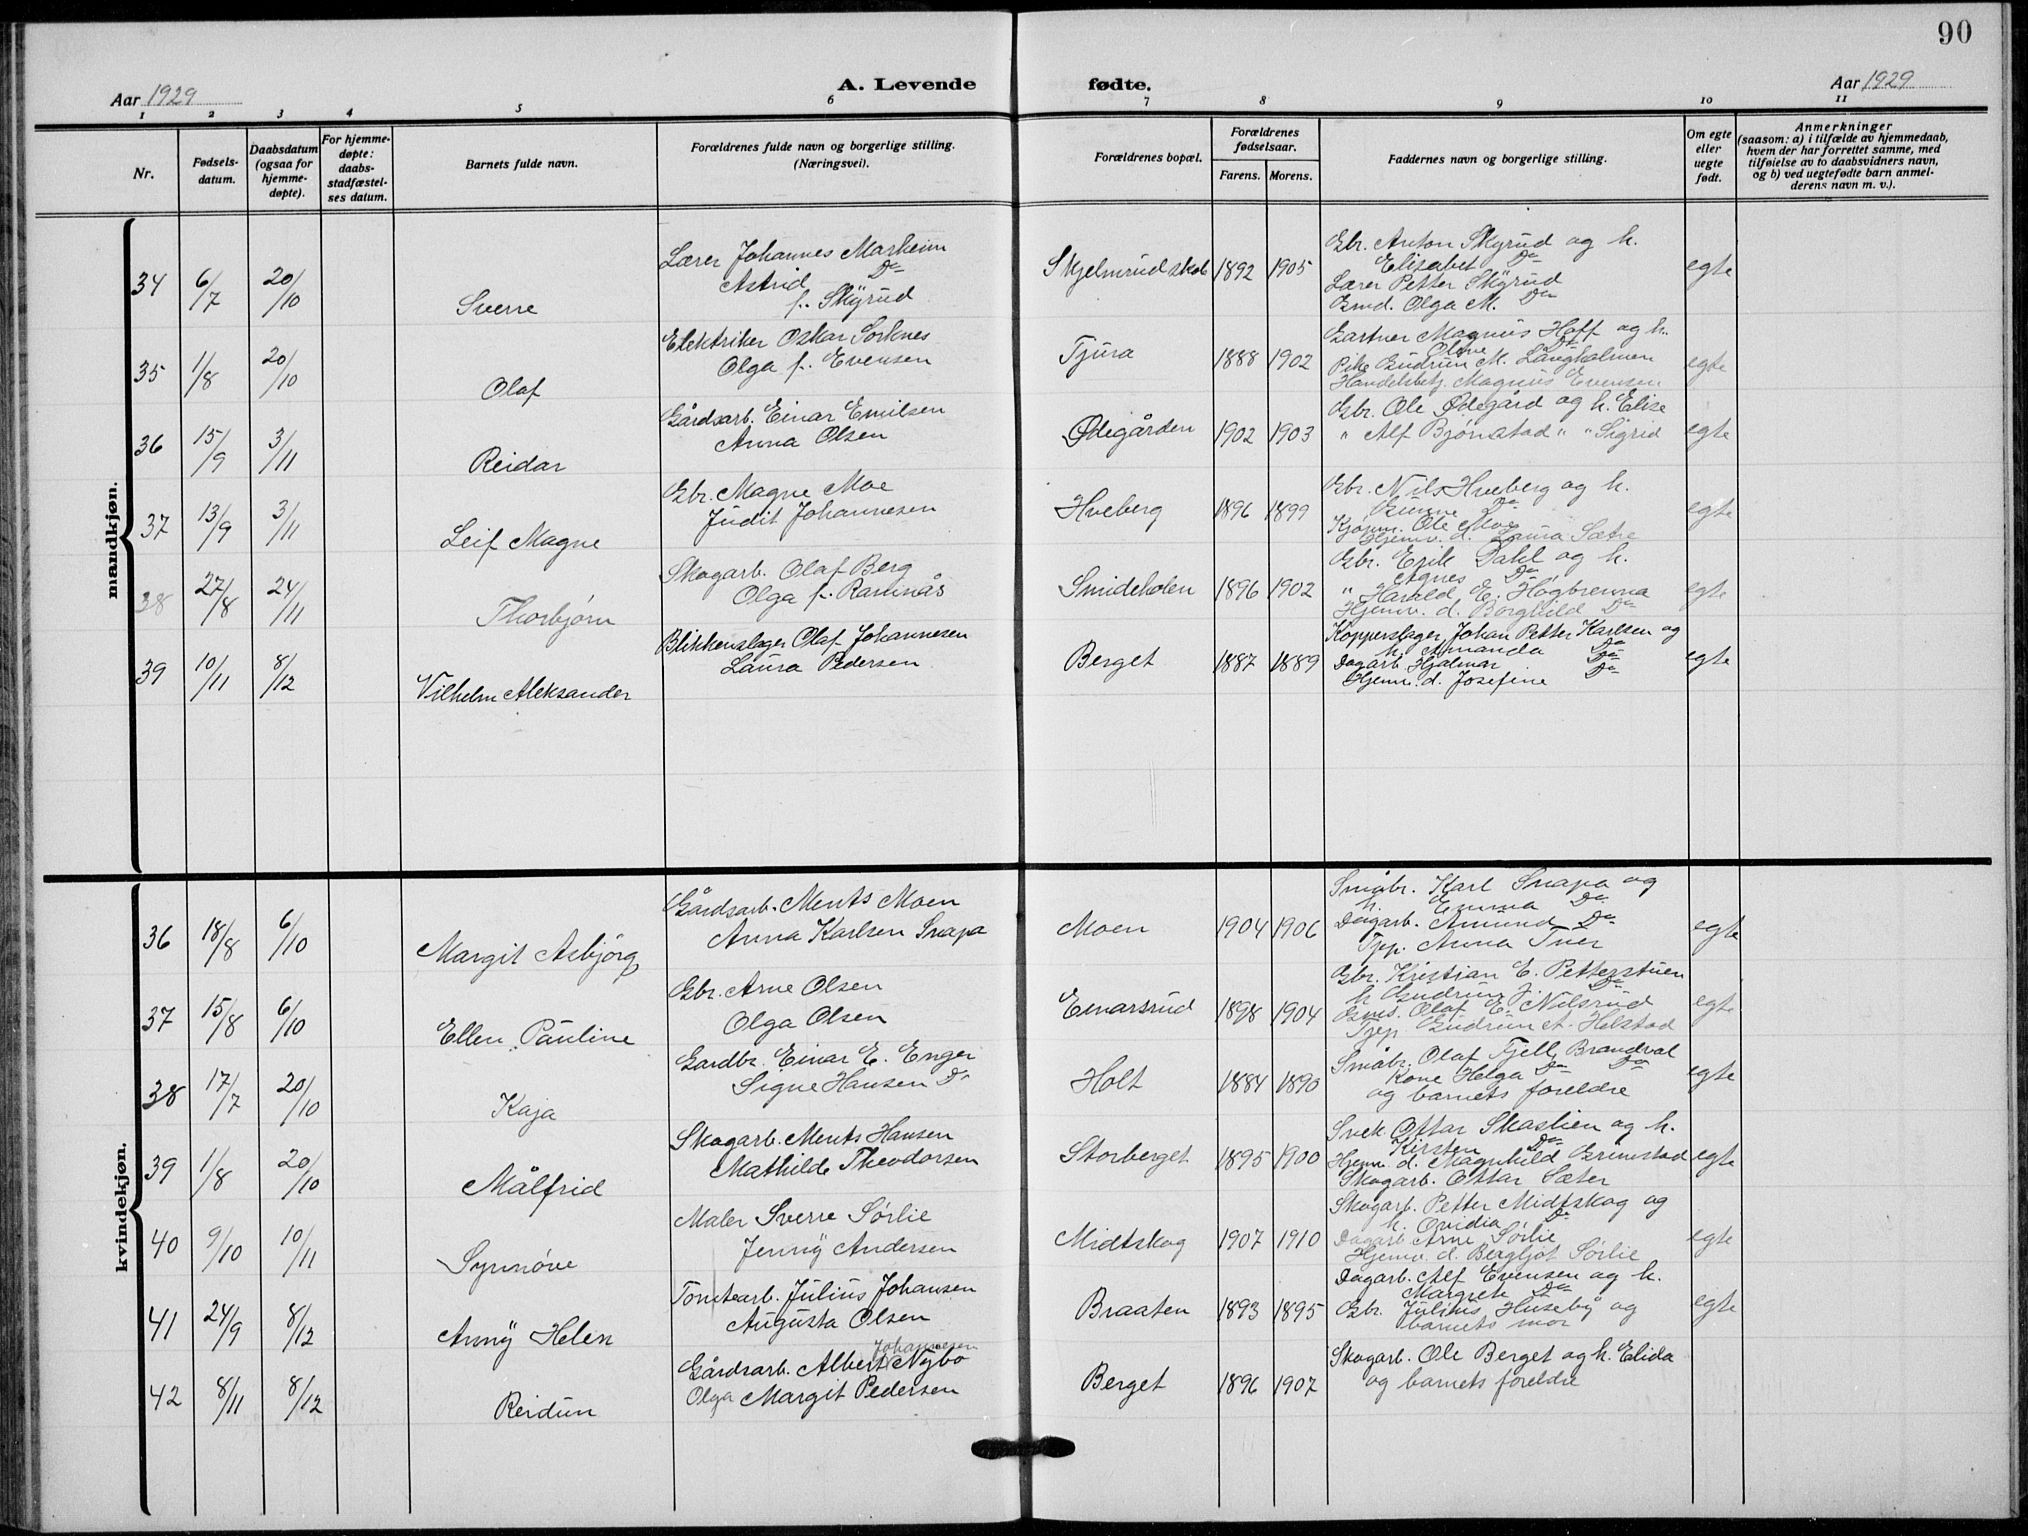 90
Aar 1929
A. Levende
fødte.
Aar 1929
1 2 3 4 5 6 7 8 9 10 11
Nr.
Fødsels-
datum.
Daabsdatum
(ogsaa for
hjemme-
døpte).
For hjemme-
døpte:
daabs-
stadfæstel-
ses datum.
Barnets fulde navn.
Forældrenes fulde navn og borgerlige stilling.
(Næringsvei).
Forældrenes bopæl.
Forældrenes
fødselsaar.
Farens. Morens.
Faddernes navn og borgerlige stilling.
Om egte
eller
uegte
født.
Anmerkninger
(saasom: a) i tilfælde av hjemmedaab,
hvem der har forrettet samme, med
tilføielse av to daabsvidners navn,
og b) ved uegtefødte barn anmel-
derens navn m. v.).
mandkjøn.
34 6/7 20/10 Sverre
Lærer Johannes Marheim
Astrid Do
f. Skyrud
Skjelmrud skole 1892 1905
Gbr. Anton Skyrud og h.
Elisabet Do
Lærer Petter Skyrud
Gmd. Olga M. Do
egte
35 1/8 20/10 Olaf
Elektriker Oskar Sorknes
Olga f. Evensen
Tjura 1888 1902
Gartner Magnus Hoff og h.
Oline Do
Pike Gudrun M. Langholmen
Handelsbetj. Magnus Evensen
egte
36 15/9 3/11 Reidar
Gårdsarb. Einar Emilsen
Anna Olsen
Ødegården 1902 1903
Gbr. Ole Ødegård og h. Elise
" Alf Bjørnstad " " Sigrid
egte
37 13/9 3/11 Leif Magne
Gbr. Magne Moe
Judit Johannesen
Hveberg 1896 1899
Gbr. Nils Hveberg og h.
Do
Kjøpm. Ole Moe
Hjemv. d. Laura Sætre
egte
38 27/8 24/11 Thorbjørn
Skogarb. Olaf Berg
Olga f. Ramnås
Smideholen 1896 1902
Gbr. Erik Dahl og h.
Agnes Do
" Harald E. Høgbrenna
Hjemv. d. Borghild Do
egte
39 10/11 8/12 Vilhelm Aleksander
Blikkenslager Olaf Johannesen
Laura Pedersen
Berget 1887 1889
Kopperslager Johan Petter Karlsen og
h. Amanda Do
Dagarb. Hjalmar Do
Hjemv. d. Josefine Do
egte
kvindekjøn.
36 18/8 6/10 Margit Asbjørg
Gårdsarb. Ments Moen
Anna Karlsen Snapa
Moen 1904 1906
Småbr. Karl Snapa og
h. Emma Do
Dagarb. Amund Do
Tjep. Anna Tner
egte
37 15/8 6/10 Ellen Pauline
Gbr. Arne Olsen
Olga Olsen
Einarsrud 1898 1904
Gbr. Kristian E. Petterstuen
h. Gudrun J. Do
Gms. Olaf E. Nilsrud
Tjep. Gudrun A. Helstad
egte
38 17/7 20/10 Kaja
Gardbr. Einar E. Enger
Signe Hansen Do
Holt 1884 1890
Småbr. Olaf Fjell, Brandval
Kone Helga Do Do
og barnets foreldre
egte
39 1/8 20/10 Målfrid
Skogarb. Ments Hansen
Mathilde Theodorsen
Storberget 1895 1900
Snek. Ottar Skaslien og h.
Kirsten Do
Hjemv. d. Magnhild Grimstad
Skogarb. Ottar Sæter
egte
40 9/10 10/11 Synnøve
Maler Sverre Sørlie
Jenny Andersen
Midtskog 1907 1910
Skogarb. Petter Midtskog og
h. Ovidia Do
Dagarb. Arne Sørlie
Hjemv. d. Bergljot Sørlie
egte
41 24/9 8/12 Anny Helen
Tomtearb. Julius Johansen
Augusta Olsen
Braaten 1893 1895
Dagarb. Alf Evensen og h.
Margrete Do
Gbr. Julius Huseby og
barnets mor
egte
42 8/11 8/12 Reidun
Johannesen
Gårdsarb. Albert Nybo
Olga Margit Pedersen
Berget 1896 1907
Skogarb. Ole Berget og h. Elida
og barnets foreldre